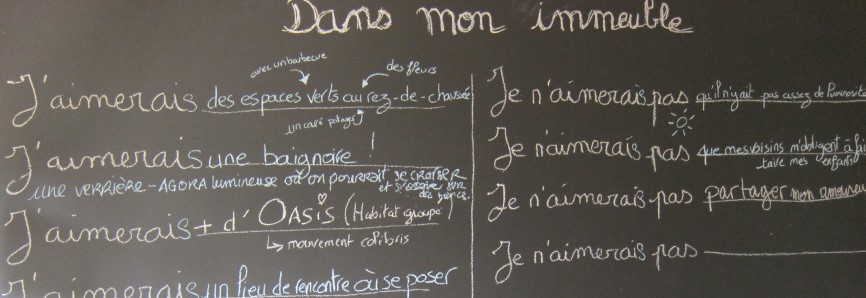 Dans mon immeuble
avec un barbecue
des fleurs
J'aimerais des espaces verts au rez-de-chaussée
un carré potager
J'aimerais une baignoire !
une verrière-AGORA lumineuse où on pourrait se croiser
et s'asseoir sur
des bancs.
J'aimerais + d'OASIS (Habitat groupé)
↳ mouvement colibris
J'aimerais un lieu de rencontre où se poser
Je n'aimerais pas qu'il n'y ait pas assez de luminosité
Je n'aimerais pas que mes voisins m'obligent à
taire mes enfants
Je n'aimerais pas partager mon
Je n'aimerais pas